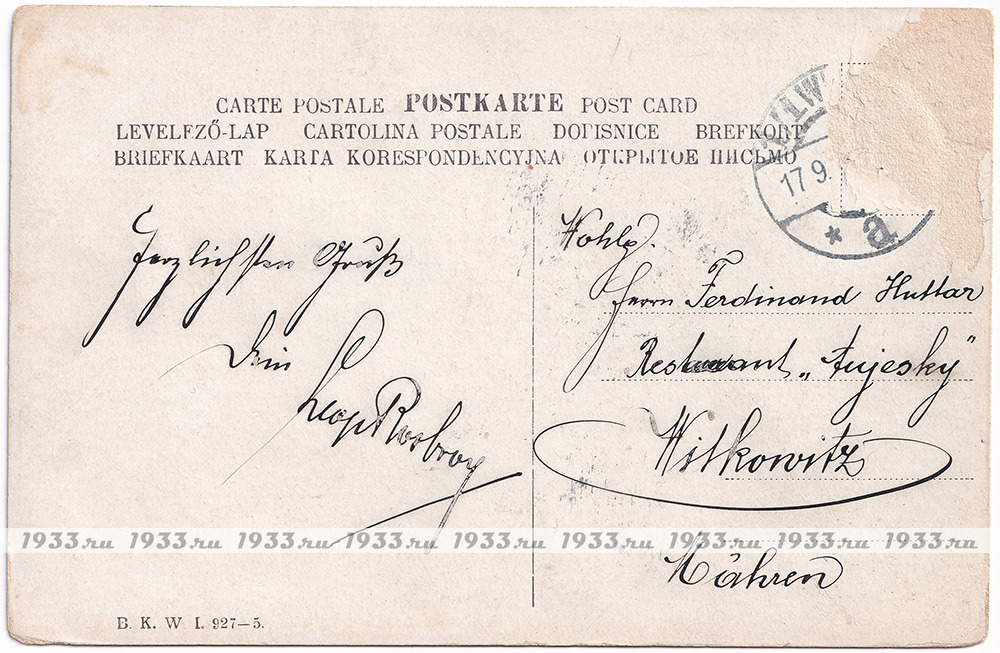 CARTE POSTALE POSTKARTE POST CARD
LEVELEZŐ-LAP CARTOLINA POSTALE DOPISNICE BREFKORT
BRIEFKAART KARTA KORESPONDENCYJNA ОТКРЫТОЕ ПИСЬМО
17 9.
* a
Herzlichsten Gruß
Dein
Leop
Wohlg.
Herrn Ferdinand Huttar
Restaurant „Aujesky"
Witkowitz
Mähren
1933.ru 1933.ru 1933.ru 1933.ru 1933.ru 1933.ru 1933.ru 1933.ru 1933.ru
B. K. W. I. 927—5.